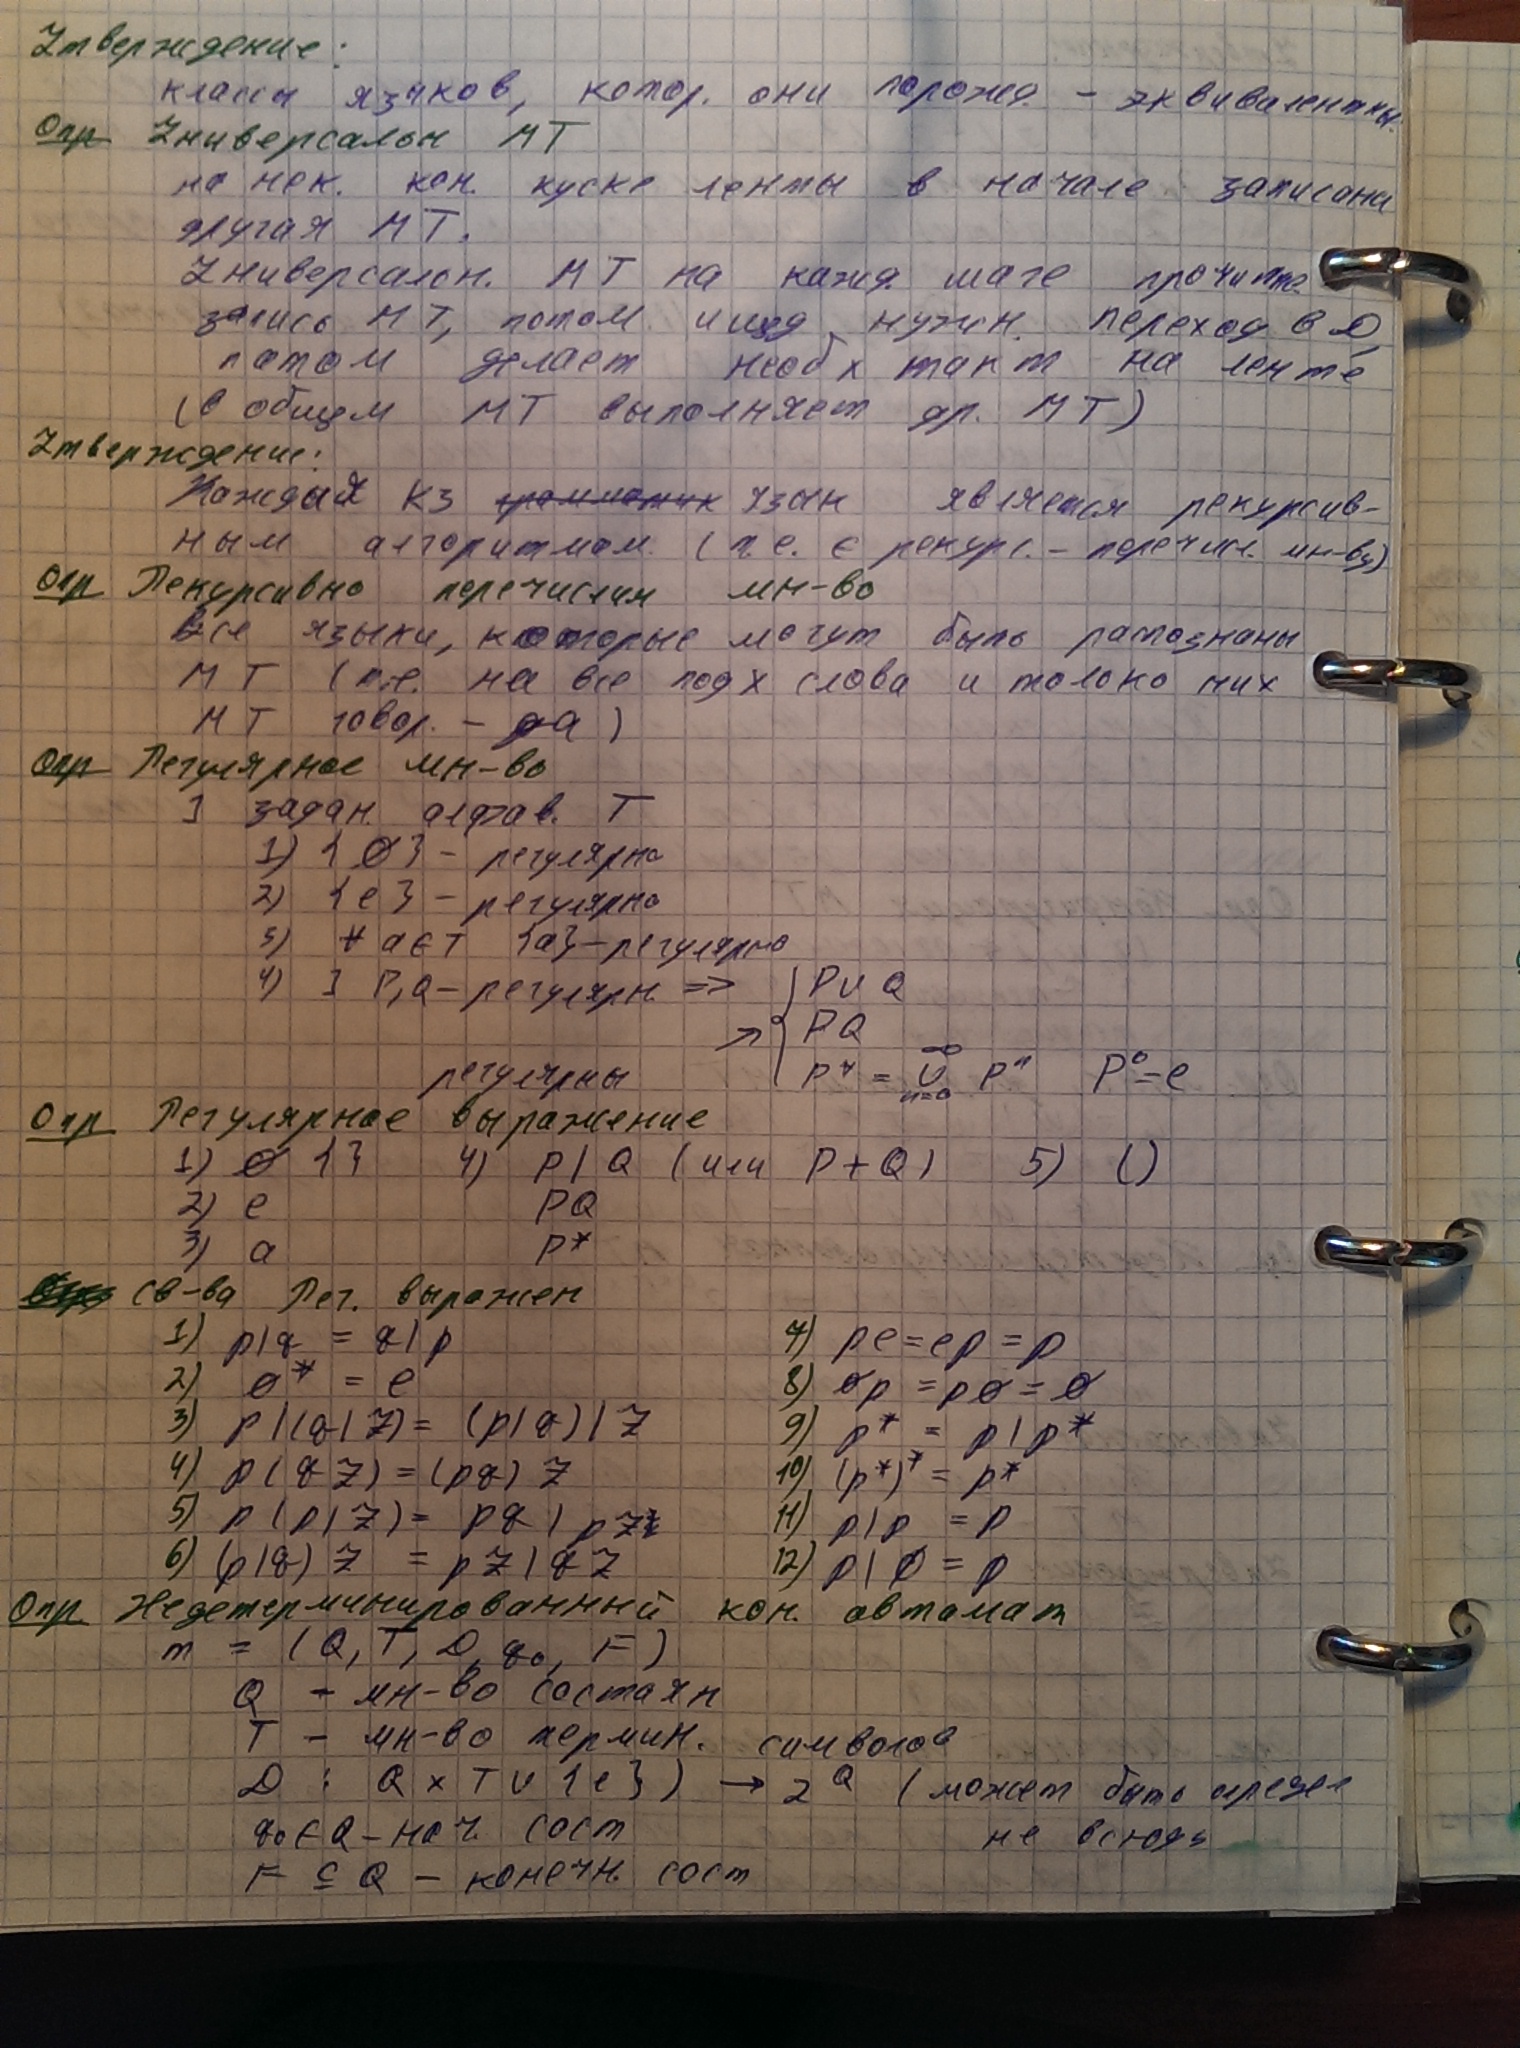 Утверждение:
классы языков, котор. они порожд. - эквивалентны.
Опр Универсальн МТ
на нек. кон. куске ленты в начале записана
другая МТ.
Универсальн. МТ на кажд. шаге прочитт.
запись МТ, потом ищед нужн. переход в D,
потом делает необх такт на ленте
(в общем МТ выполняет др. МТ)
Утверждение:
Каждый КЗ язык является рекурсив-
ным алгоритмом. (т.е. ∈ рекурс. - перечисл. мн-ву)
Опр Рекурсивно перечислим мн-во
Все языки, которые могут быть распознаны
МТ (т.е. на все подх слова и только них
МТ говор. - да)
Опр Регулярное мн-во
] задан. алфав. T
1) {∅} - регулярно
2) {e} - регулярно
3) ∀ a∈T {a} - регулярно
4) ] P,Q - регулярн. => { P∪Q
PQ
регулярны P* = ∪ₙ₌₀^∞ Pⁿ P⁰=e
Опр Регулярное выражение
1) ∅ {} 4) P|Q (или P+Q) 5) ()
2) e PQ
3) a P*
Св-ва Рег. выражен
1) p|q = q|p 7) pe=ep=p
2) ∅* = e 8) ∅p = p∅ = ∅
3) p|(q|z) = (p|q)|z 9) p* = p|p*
4) p(qz) = (pq)z 10) (p*)* = p*
5) p(p|z) = pq|pz 11) p|p = p
6) (p|q)z = pz|qz 12) p|∅ = p
Опр Недетерминированный кон. автомат
m = (Q, T, D, q₀, F)
Q - мн-во состаян
T - мн-во термин. символов
D : Q × T ∪ {e}) → 2^Q (может быть определ
q₀∈Q - нач. сост не всюдъ
F ⊆ Q - конечн. сост